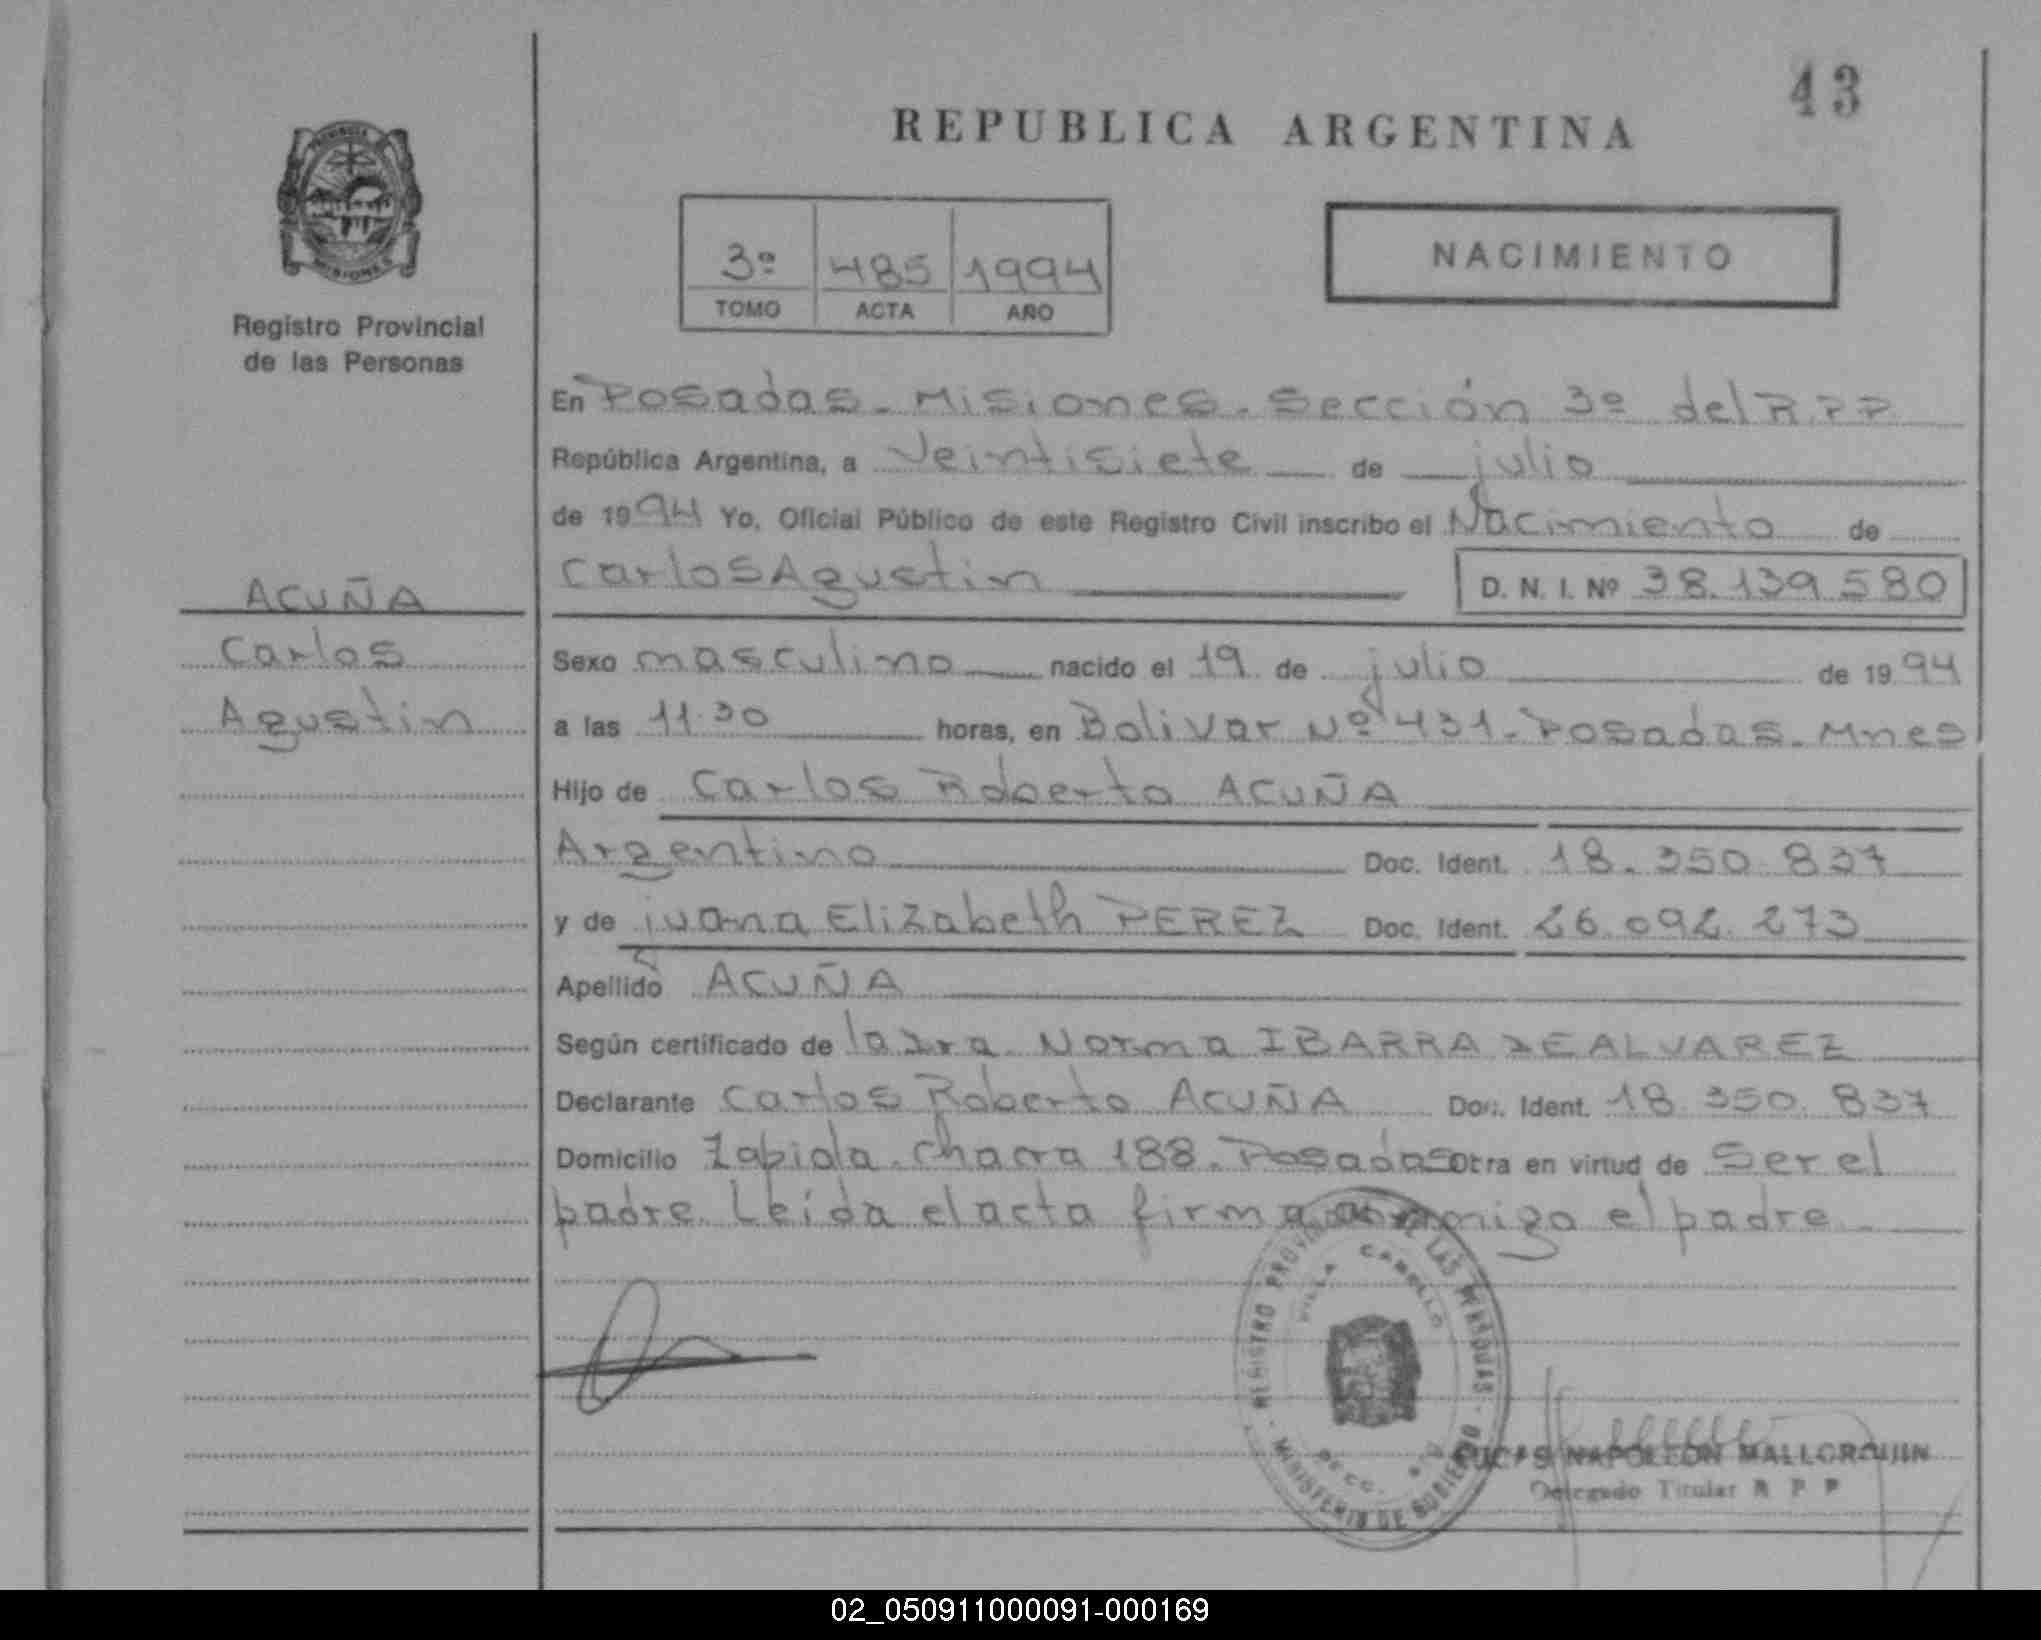 43
REPUBLICA ARGENTINA
NACIMIENTO
3º 485 1994
TOMO ACTA AÑO
Registro Provincial
de las Personas
En Posadas - Misiones - Sección 3º del R.P.P
República Argentina, a Veintisiete de julio
de 1994 Yo, Oficial Público de este Registro Civil inscribo el Nacimiento de
Carlos Agustin D. N. I. Nº 38.139.580
ACUÑA
Carlos
Agustin
Sexo masculino nacido el 19 de julio de 1994
a las 11.30 horas, en Bolivar Nº 431 - Posadas - Mnes
Hijo de Carlos Roberto ACUÑA
Argentino Doc. Ident. 18.350.837
y de juana Elizabeth PEREZ Doc. Ident. 26.092.273
Apellido ACUÑA
Según certificado de la Dra. Norma IBARRA DE ALVAREZ
Declarante Carlos Roberto ACUÑA Doc. Ident. 18.350.837
Domicilio Zapiola - Chacra 188 - Posadas Obra en virtud de Ser el
padre. Leída el acta firma conmigo el padre
REGISTRO PROVINCIAL DE LAS PERSONAS - MINISTERIO DE GOBIERNO
VILLA CABELLO
LUCAS NAPOLEON MALLORQUIN
Delegado Titular R P P
02_050911000091-000169